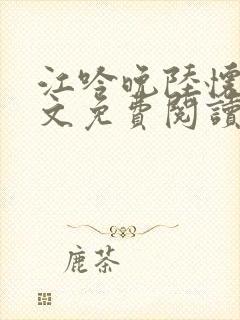 江吟晚陸懷
文免費閱讀
鹿茶